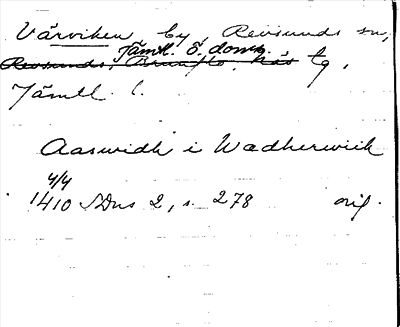 Värviken by, Revsunds sn,
Jämtl. ö. doms.
Revsunds, Brunflo, Näs tg,
Jämtl. l.
Aaswidh i Wadherwiik
4/4
1410 SDns 2, s. 278 orig.